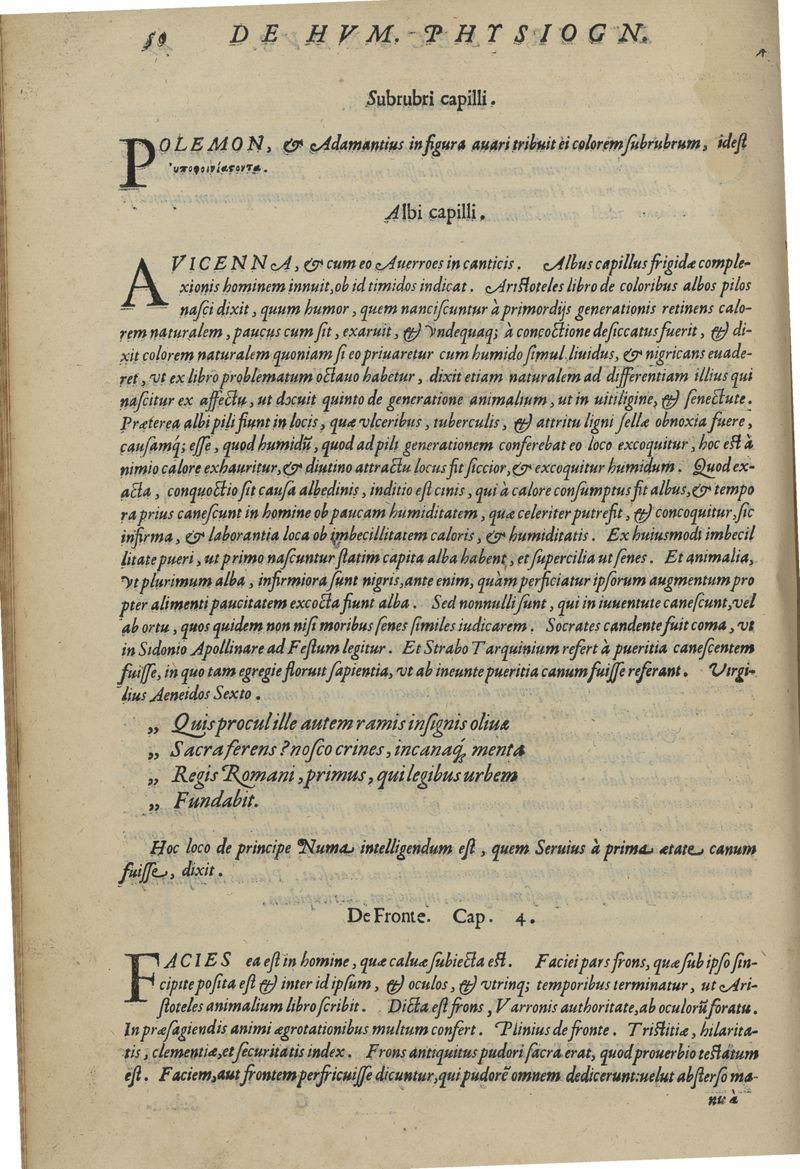 50 DE HVM. PHYSIOGN.
Subrubri capilli.
POLEMON, & Adamantius in figura auari tribuit ei colorem ſubrubrum, ideſt
ὑποφοινίσσοντα.
Albi capilli.
AVICENNA, & cum eo Auerroes in canticis. Albus capillus frigidæ comple-
xionis hominem innuit, ob id timidos indicat. Ariſtoteles libro de coloribus albos pilos
naſci dixit, quum humor, quem nanciſcuntur à primordijs generationis retinens calo-
rem naturalem, paucus cum ſit, exaruit, & vndequaq; à concoctione deſiccatus fuerit, & di-
xit colorem naturalem quoniam ſi eo priuaretur cum humido ſimul, liuidus, & nigricans euade-
ret, vt ex libro problematum octauo habetur, dixit etiam naturalem ad differentiam illius qui
naſcitur ex affectu, ut docuit quinto de generatione animalium, ut in uitiligine, & ſenectute.
Præterea albi pili fiunt in locis, quæ vlceribus, tuberculis, & attritu ligni ſellæ obnoxia fuere,
cauſamq́; eſſe, quod humidũ, quod ad pili generationem conferebat eo loco excoquitur, hoc eſt à
nimio calore exhauritur, & diutino attractu locus fit ſiccior, & excoquitur humidum. Quod ex-
acta, conquoctio ſit cauſa albedinis, inditio eſt cinis, qui à calore conſumptus fit albus, & tempo
ra prius caneſcunt in homine ob paucam humiditatem, quæ celeriter putrefit, & concoquitur, ſic
infirma, & laborantia loca ob imbecillitatem caloris, & humiditatis. Ex huiusmodi imbecil
litate pueri, ut primo naſcuntur ſtatim capita alba habent, et ſupercilia ut ſenes. Et animalia,
vt plurimum alba, infirmiora ſunt nigris, ante enim, quàm perficiatur ipſorum augmentum pro
pter alimenti paucitatem excocta fiunt alba. Sed nonnulli ſunt, qui in iuuentute caneſcunt, vel
ab ortu, quos quidem non niſi moribus ſenes ſimiles iudicarem. Socrates candente fuit coma, vt
in Sidonio Apollinare ad Feſtum legitur. Et Strabo Tarquinium refert à pueritia caneſcentem
fuiſſe, in quo tam egregie floruit ſapientia, vt ab ineunte pueritia canum fuiſſe referant. Virgi-
lius Aeneidos Sexto.
„ Quis procul ille autem ramis inſignis oliuæ
„ Sacra ferens? noſco crines, incanaq́; menta
„ Regis Romani, primus, qui legibus urbem
„ Fundabit.
Hoc loco de principe Numa intelligendum eſt, quem Seruius à prima ætate canum
fuiſſe, dixit.
De Fronte. Cap. 4.
FACIES ea eſt in homine, quæ caluæ ſubiecta eſt. Faciei pars frons, quæ ſub ipſo ſin-
cipite poſita eſt & inter id ipſum, & oculos, & vtrinq; temporibus terminatur, ut Ari-
ſtoteles animalium libro ſcribit. Dicta eſt frons, Varronis authoritate, ab oculorũ foratu.
In præſagiendis animi ægrotationibus multum confert. Plinius de fronte. Triſtitiæ, hilarita-
tis, clementiæ, et ſecuritatis index. Frons antiquitus pudori ſacra erat, quod prouerbio teſtatum
eſt. Faciem, aut frontem perfricuiſſe dicuntur, qui pudorẽ omnem dedicerunt: uelut abſterſo ma-
nu à